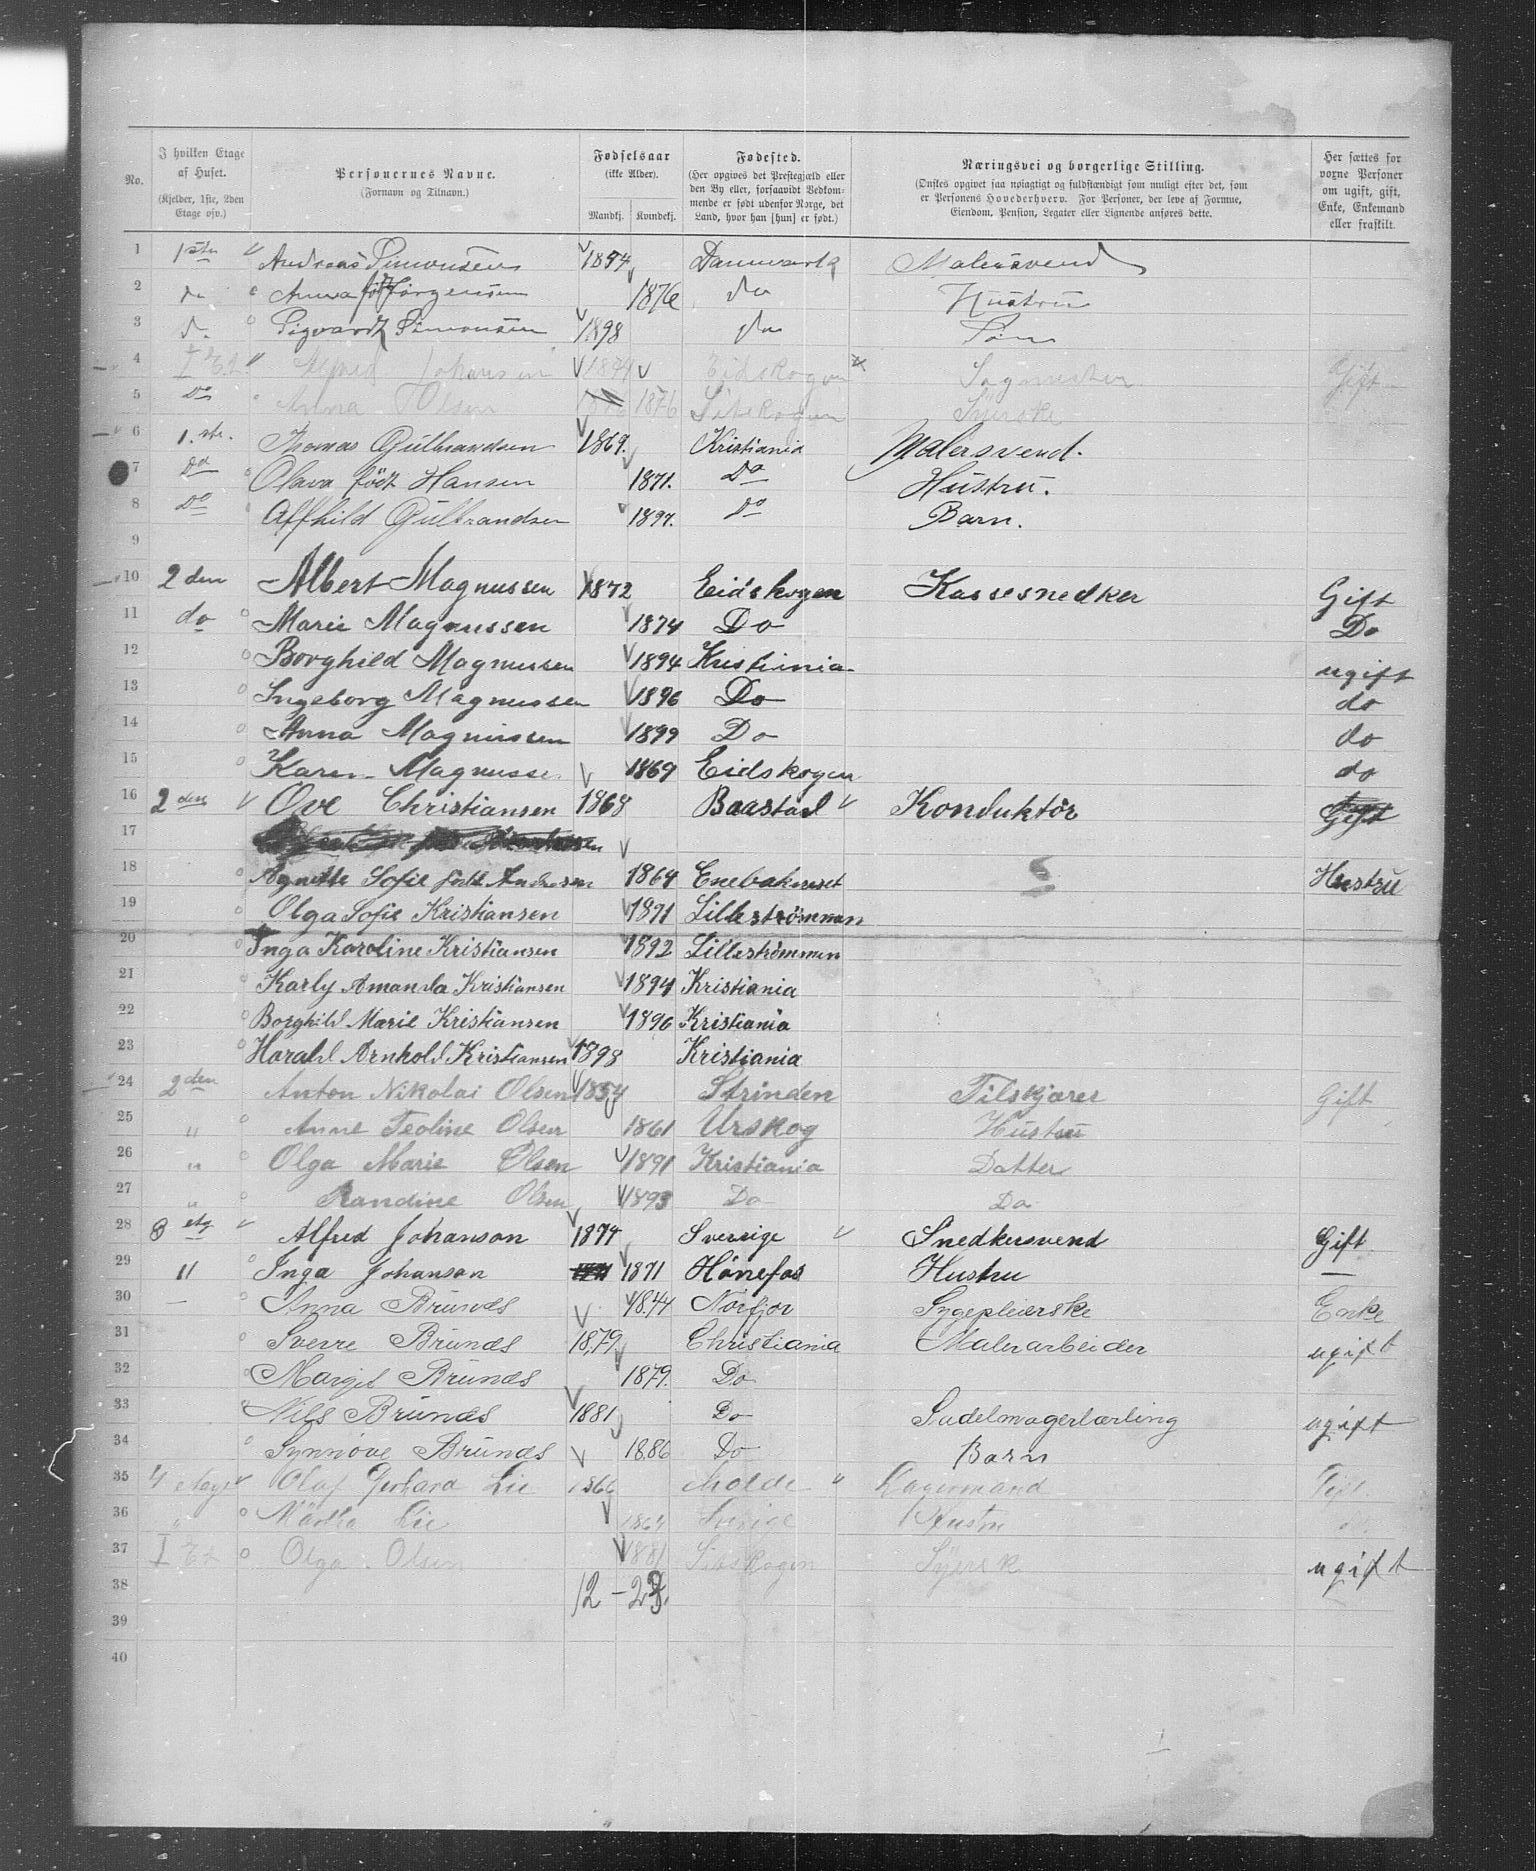 No. | I hvilken Etage af Huset. (Kjelder, 1ste, 2den Etage osv.) | Personernes Navne. (Fornavn og Tilnavn.) | Fødselsaar (ikke Alder). Mandkj. Kvindekj. | Fødested. (Her opgives det Prestegjæld eller den By eller, forsaavidt Vedkommende er født udenfor Norge, det Land, hvor han [hun] er født.) | Næringsvei og borgerlige Stilling. (Ønskes opgivet saa nøiagtigt og fuldstændigt som muligt efter det, som er Personens Hovederhverv. For Personer, der leve af Formue, Eiendom, Pension, Legater eller Lignende anføres dette. | Her sættes for voxne Personer om ugift, gift, Enke, Enkemand eller fraskilt.
1 1ste Andreas Simonsen 1874 Danmark Malersvend
2 do Anna født Jørgensen 1876 do Hustru
3 d. Sigvardt Simonsen 1898 do Søn
4 I Et. Alfred Johansen 1874 Eidskogen Sagmester Gift
5 Do Anna Olsen 1876 Syerske
6 1.ste. Thomas Gulbrandsen 1869. Kristiania Malersvend.
7 Do Olava født Hansen 1871. Do Hustru.
8 Do Affhild Gulbrandsen 1897. Do Barn.
9
10 2den Albert Magnussen 1872 Eidskogen Kassesnedker Gift
11 do Marie Magnussen 1874 Do Do
12 Borghild Magnussen 1894 Kristiania ugift
13 Ingeborg Magnussen 1896 Do do
14 Anna Magnussen 1899 Do do
15 Karen Magnussen 1869 Eidskogen do
16 2den Ove Christiansen 1868 Baastad Konduktør Gift
17
18 Agnethe Sofie født Andresen 1864 Enebakneset Hustru
19 Olga Sofie Kristiansen 1891 Lillestrømmen
20 Inga Karoline Kristiansen 1892 Lillestrømmen
21 Karly Amanda Kristiansen 1894 Kristiania
22 Borghild Marie Kristiansen 1896 Kristiania
23 Harald Arnhold Kristiansen 1898 Kristiania
24 2den Anton Nikolai Olsen 1854 Strinden Tilskjærer Gift
25 " Anne Teoline Olsen 1861 Urskog Hustru
26 " Olga Marie Olsen 1891 Kristiania Datter
27 " Randine Olsen 1893 Do Do
28 3 etg Alfred Johanson 1874 Sverrige Snedkersvend Gift
29 " Inga Johanson 1871 Hønefos Hustru —
30 — Anna Brunæs 1844 Norfjor Sygepleierske Enke
31 Sverre Brunæs 1879. Christiania Malerarbeider ugift
32 Margit Brunæs 1879. Do
33 Nils Brunæs 1881 Do Sadelmagerlærling ugift
34 Synnøve Brunæs 1886 Do Barn
35 4 Etage Olaf Gerhard Lie 1866 Molde Lagermand Gift
36 " Märtha Lie 1864 Sverige Hustru
37 I Et Olga Olsen 1881 Eidskogen Syersk ugift
38 12 – 23
39
40